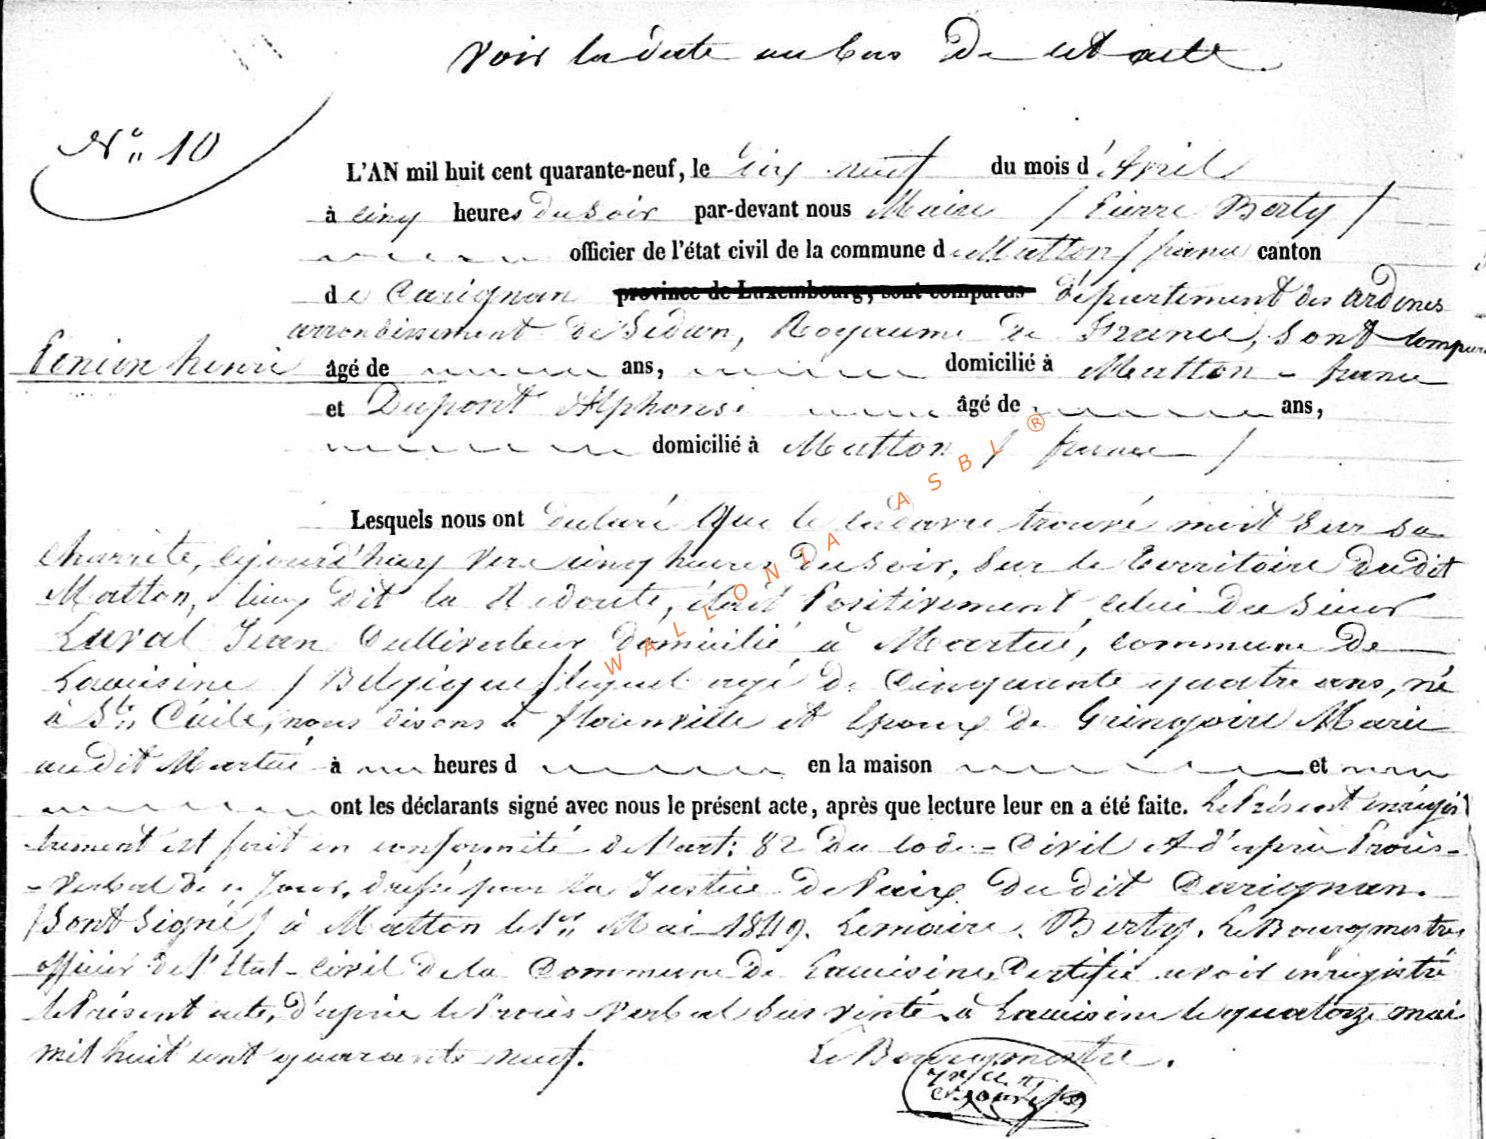 Voir la date au bas de cet acte.
N° 10
L'AN mil huit cent quarante-neuf, le dix neuf du mois d'Avril
à cinq heures du soir par-devant nous Maire / Pierre Berty /
officier de l'état civil de la commune de Matton / france canton
de Carignan province de Luxembourg, sont comparus département des ardenes
arrondissement de Sedan, Royaume de France, sont compar
Penion henri âgé de ans, domicilié à Matton - france
et Dupont Alphonse âgé de ans,
domicilié à Matton / france /
Lesquels nous ont déclaré Que le cadavre trouvé mort sur sa
charrete, cejourd'huy vers cinq heures du soir, sur le territoire du dit
Matton, lieu dit la Redoute, était Positivement celui du sieur
Laval Jean Cultivateur domicilié à Martué, commune de
Lacuisine / Belgique / lequel agé de Cinquante quatre ans, né
à Ste Cécile, nous disons à florenville et Epoux de Gringoire Marie
au dit Martué à heures d en la maison et
ont les déclarants signé avec nous le présent acte, après que lecture leur en a été faite. Le Présent enrégis
trement est fait en conformité de l'art: 82 du code - Civil et d'après Procès-
- Verbal de ce Jour, dressé par la Justice de Paix du dit Carignan.
/ Sont Signé / à Matton le 1er Mai 1849. Lemaire. Berty. Le Bourgmestre
officier de l'Etat-Civil de la Commune de Lacuisine, Certifie avoir enregistré
le Présent acte, d'après le Procès Verbal sus vinté. à Lacuisine le quatorze mai
mil huit cent quarante neuf. Le Bourgmestre.
WALLONIA ASBL ®